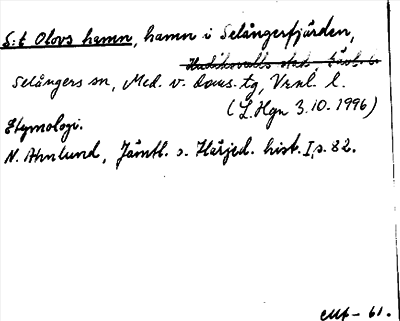 S:t Olovs hamn, hamn i Selångerfjärden,
Selångers sn, Med. v. doms. tg, Vrnl. l.
(L. Hgn 3.10.1996)
Etymologi.
N. Ahnlund, Jämtl. o. Härjed. hist. I, s. 82.
61.